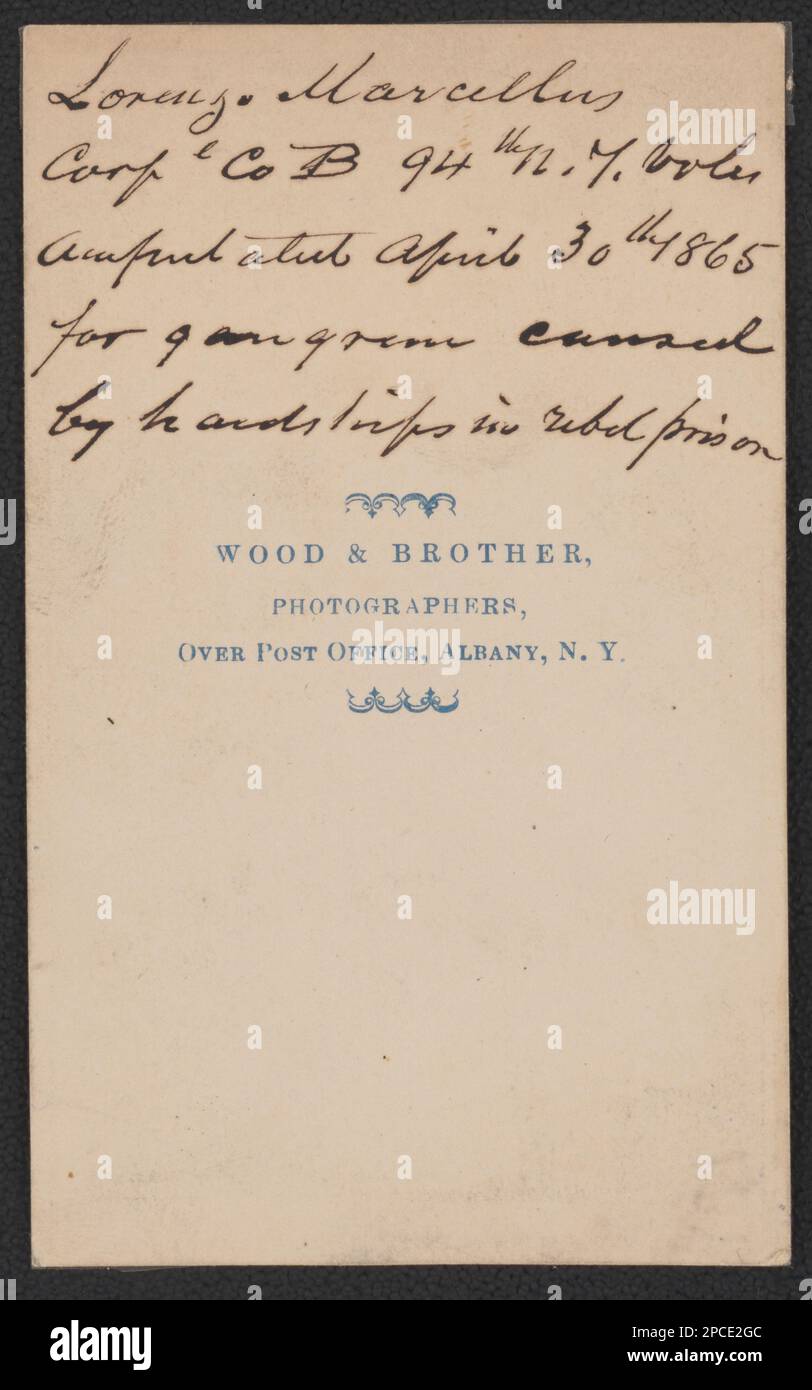 Lorenzo Marcellus
Corpl Co B 94th N.Y. Vols
Amputated April 30th 1865
for gangrene caused
by hardships in rebel prison
WOOD & BROTHER,
PHOTOGRAPHERS,
OVER POST OFFICE, ALBANY, N. Y.
alamy
a
alamy
Image ID: 2PCE2GC
www.alamy.com